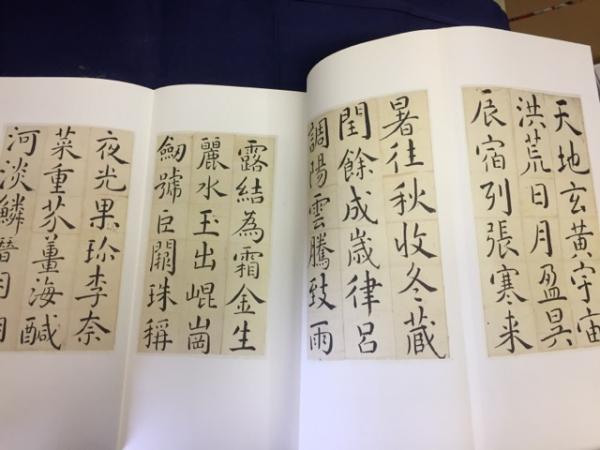 天地玄黄宇宙
洪荒日月盈昃
辰宿列張寒来
暑往秋收冬蔵
閏餘成歳律呂
調陽雲騰致雨
露結為霜金生
麗水玉出崐崗
劔號巨闕珠稱
夜光果珎李奈
菜重芥薑海鹹
河淡鱗